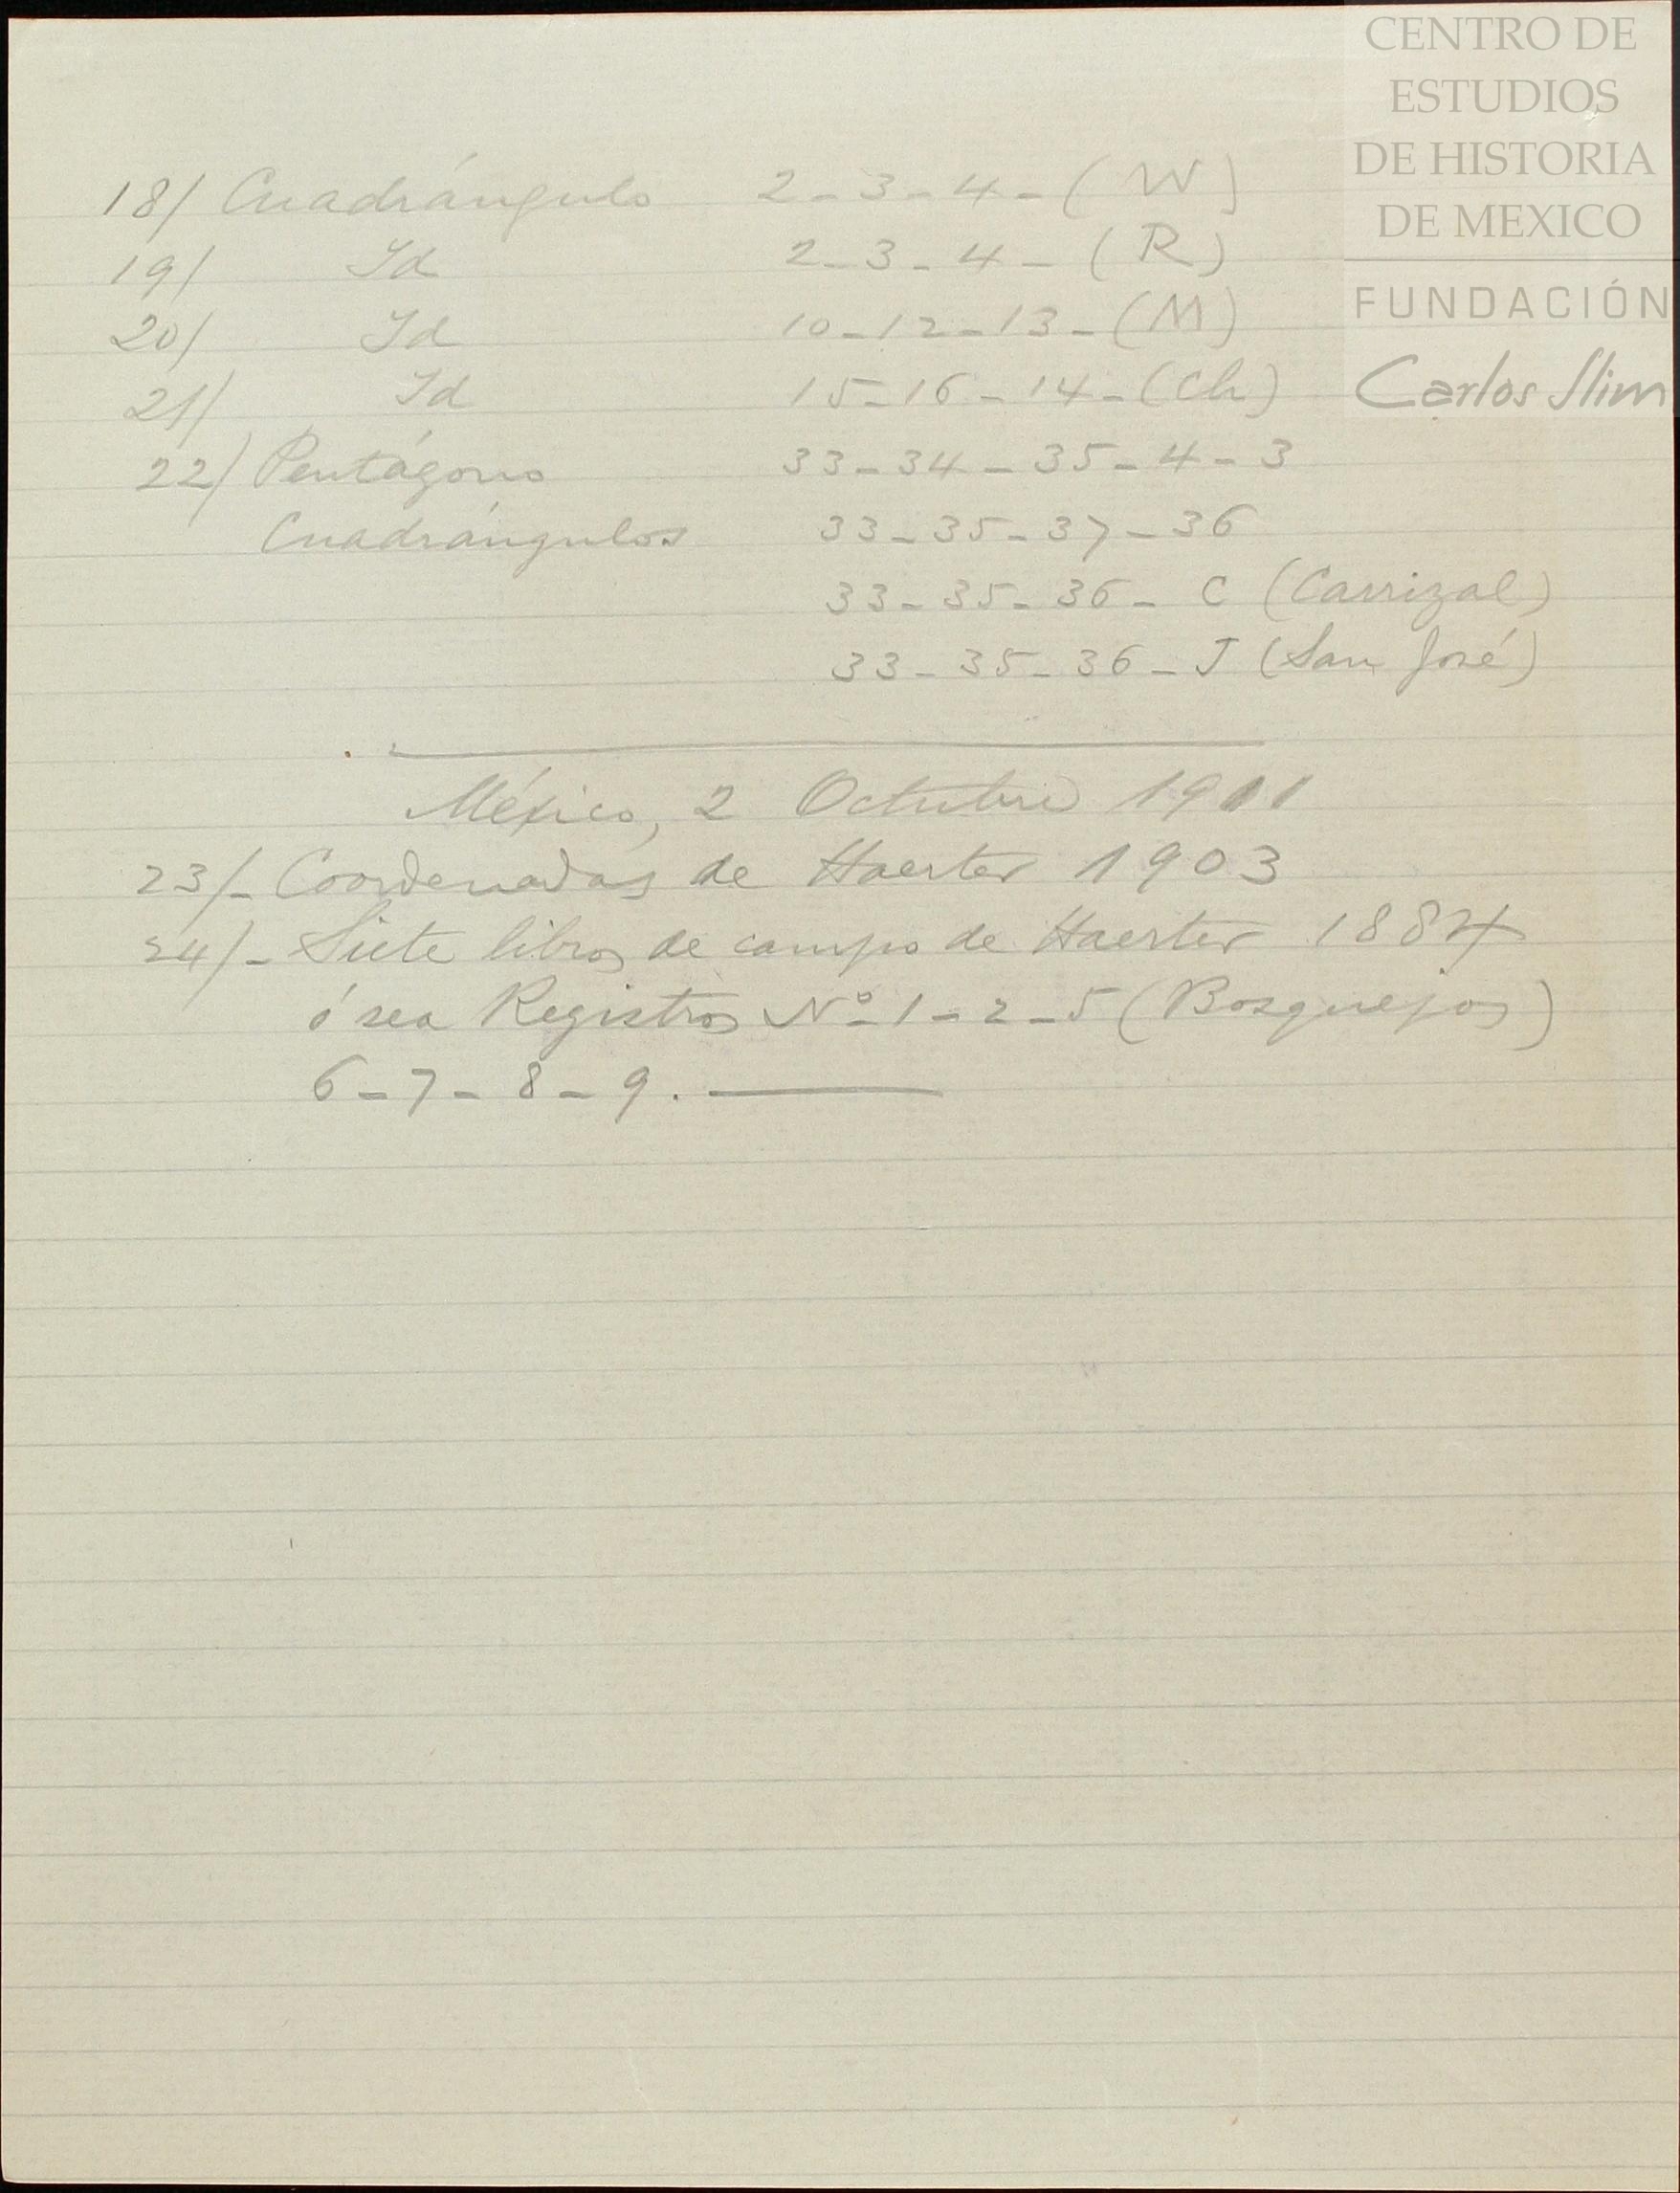 CENTRO DE
ESTUDIOS
DE HISTORIA
DE MEXICO
FUNDACIÓN
Carlos Slim
18/ Cuadrángulo 2-3-4-(W)
19/ Id 2-3-4-(R)
20/ Id 10-12-13-(M)
21/ Id 15-16-14-(Ch)
22/ Pentágono 33-34-35-4-3
Cuadrángulos 33-35-37-36
33-35-36-C (Carrizal)
33-35-36-J (San José)
México, 2 Octubre 1911
23/- Coordenadas de Haerter 1903
24/- Siete libros de campo de Haerter 1884
ó sea Registros Nº-1-2-5 (Bosquejos)
6-7-8-9.